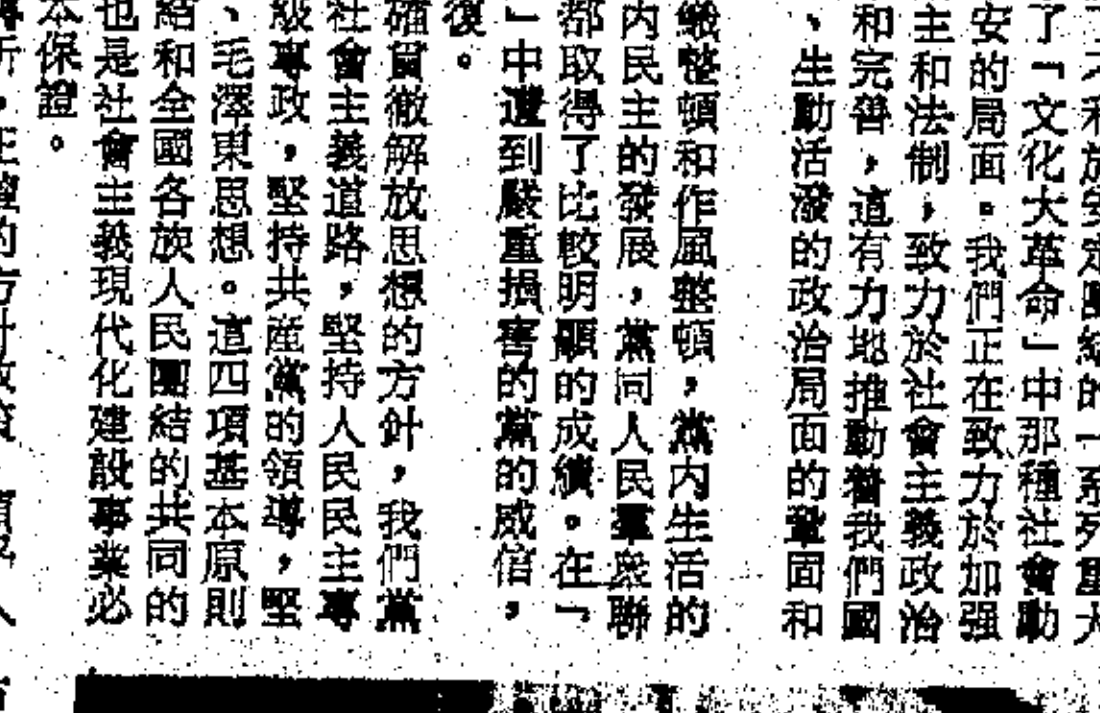 不利於安定團結的一系列重大
了「文化大革命」中那種社會動
安的局面。我們正在致力於加强
主和法制，致力於社會主義政治
和完善，這有力地推動着我們國
、生動活潑的政治局面的鞏固和
整頓和作風整頓，黨内生活的
内民主的發展，黨同人民羣衆聯
都取得了比較明顯的成績。在「
」中遭到嚴重損害的黨的威信，
復。
確貫徹解放思想的方針，我們黨
社會主義道路，堅持人民民主專
級專政，堅持共産黨的領導，堅
、毛澤東思想。這四項基本原則
結和全國各族人民團結的共同的
也是社會主義現代化建設事業必
本保證。
的方針政策